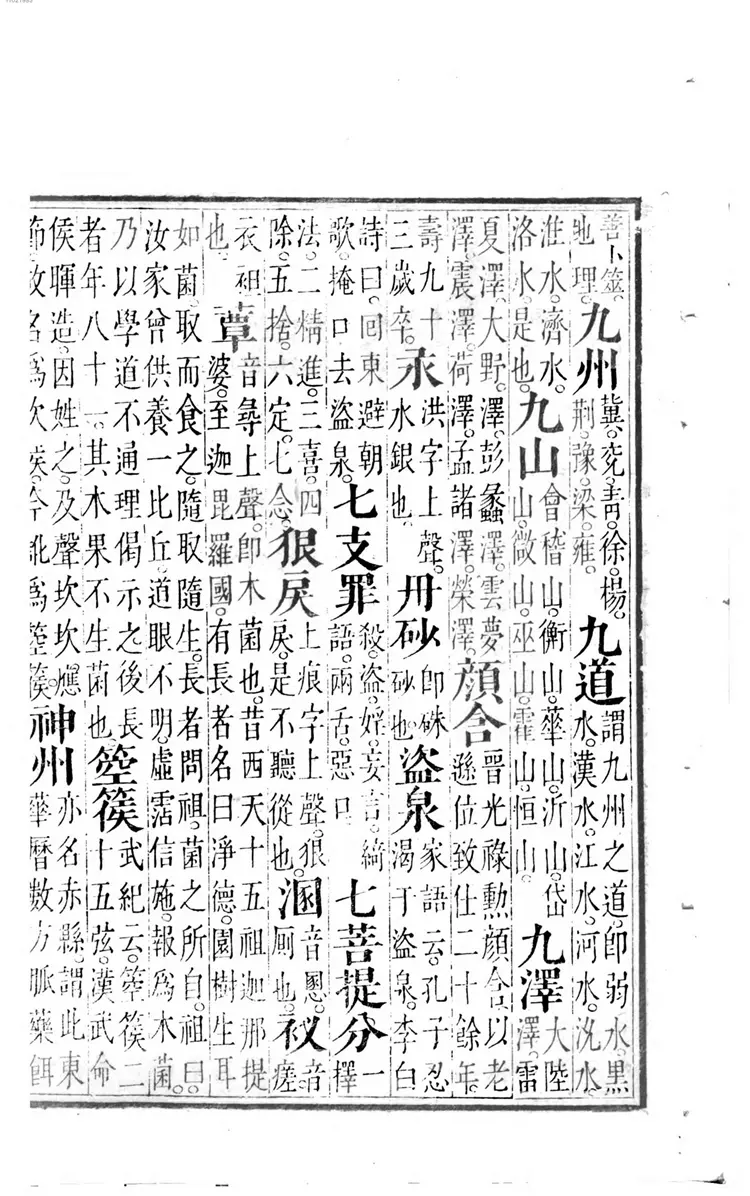 善卜筮。地理。九州冀、兖、青、徐、楊。荊、豫、梁、雍。九道謂九州之道。卽弱水。黑水。漢水。江水。河水。沇水。
淮水。濟水。洛水是也。九山會稽山。衡山。華山。沂山。岱山。微山。巫山。霍山。恒山。九澤大陸澤。雷
夏澤。大野澤。彭蠡澤。雲夢澤。震澤。荷澤。孟諸澤。榮澤。顏含晉光祿勲顏含以老遜位致仕二十餘年。
壽九十三歲卒。汞洪字上聲。水銀也丹砂卽硃砂也。盜泉家語云。孔子忍渴于盜泉。李白
詩曰。回東避朝歌。掩口去盜泉。七支罪殺。盜。婬。妄言。綺語。兩舌。惡口七菩提分一擇
法。二精進。三喜。四除。五捨。六定。七念。狠戾上痕字上聲。狠戾。是不聽從也。溷音慁。廁也。衩音瘥
衣袒也。蕈音尋上聲。卽木菌也。昔西天十五祖迦那提婆。至迦毘羅國。有長者名曰淨德。園樹生耳
如菌。取而食之。隨取隨生。長者問祖。菌之所自。祖曰。汝家曾供養一比丘。道眼不明。虛霑信施。報爲木菌。
乃以學道不通理偈示之後長者年八十一。其木果不生菌也。箜篌武紀云。箜篌二十五弦。漢武命
侯暉造。因姓之。及聲坎坎應節故名爲坎侯。今訛爲箜篌。神州亦名赤縣。謂此東華曆數方脈藥餌